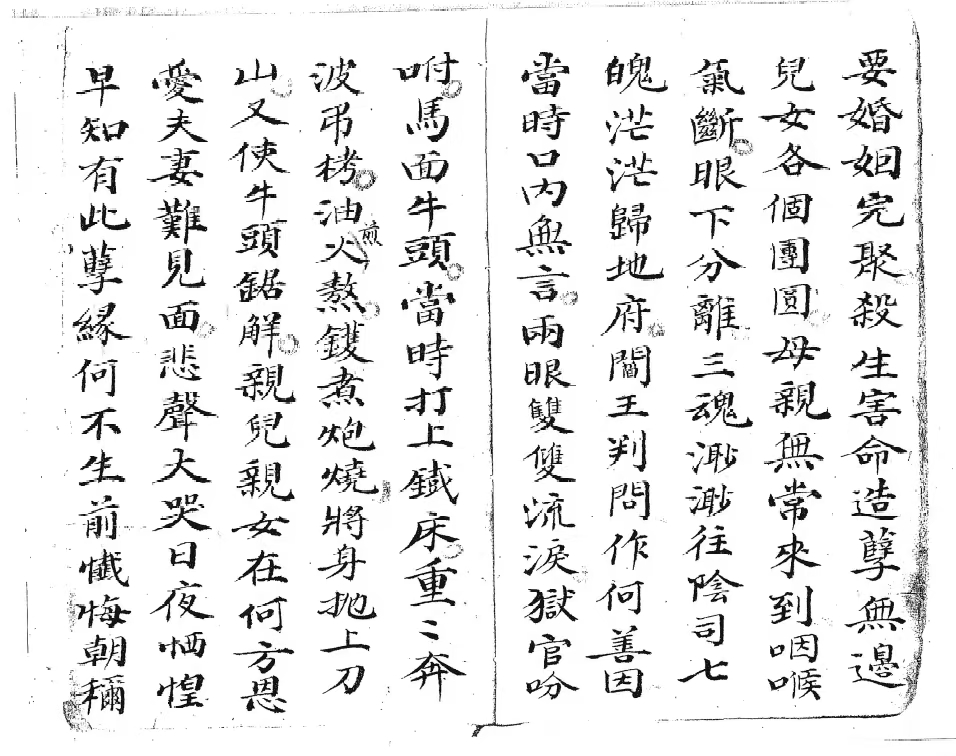 要婚姻完聚殺生害命造孽無邊
兒女各個團圓母親無常來到咽喉
氣斷眼下分離三魂渺渺往陰司七
魄茫茫歸地府閻王判問作何善因
當時口內無言兩眼雙雙流淚獄官吩
咐馬面牛頭當時打上鐵床重〻奔
波弔栲油火煎熬鑊煮炮燒將身抛上刀
山又使牛頭鋸解親兒親女在何方恩
愛夫妻難見面悲聲大哭日夜恓惶
早知有此孽緣何不生前懺悔朝